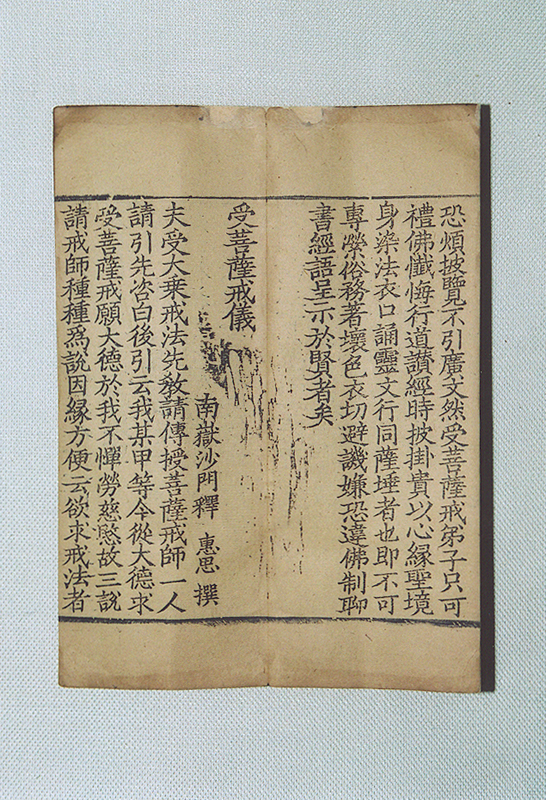 恐煩披覽不引廣文然受菩薩戒弟子只可
禮佛懺悔行道讃經時披掛貴以心緣聖境
身染法衣口誦靈文行同薩埵者也即不可
專榮俗務著壞色衣切避譏嫌恐違佛制聊
書經語呈示於賢者矣
受菩薩戒儀
南嶽沙門釋 惠思 撰
夫受大乗戒法先教請傳授菩薩戒師一人
請引先咨白後引云我某甲等今從大德求
受菩薩戒願大德於我不憚勞慈愍故三說
請戒師種種爲說因緣方便云欲求戒法者